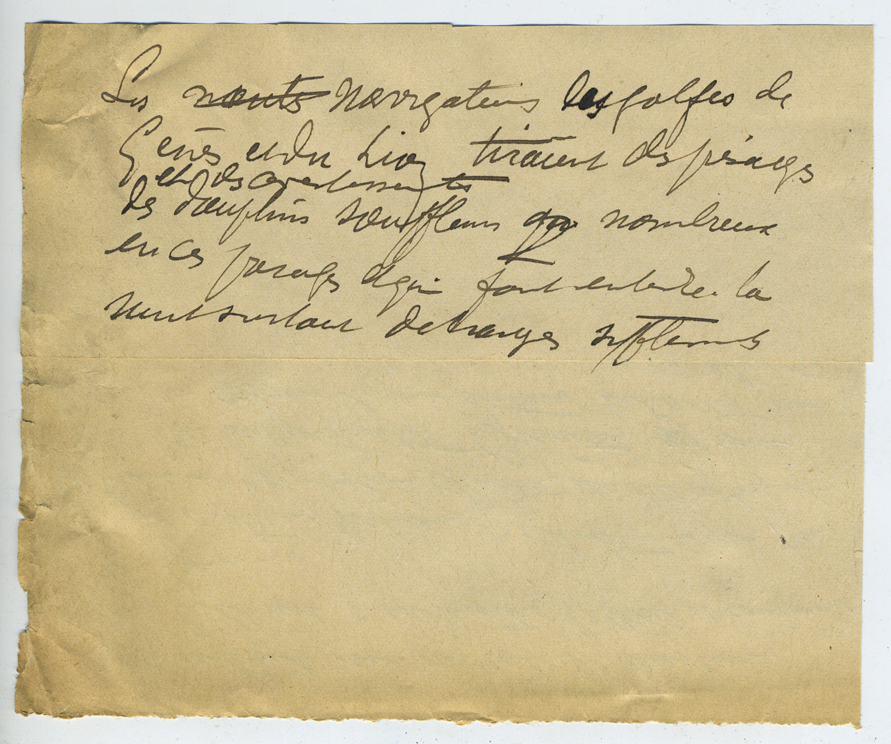 Les navigateurs des golfes de
Gênes et du Lion tiraient des présages
et des avertissements
des dauphins souffleurs nombreux
en ces parages et qui font entendre la
nuit surtout d'etranges sifflements